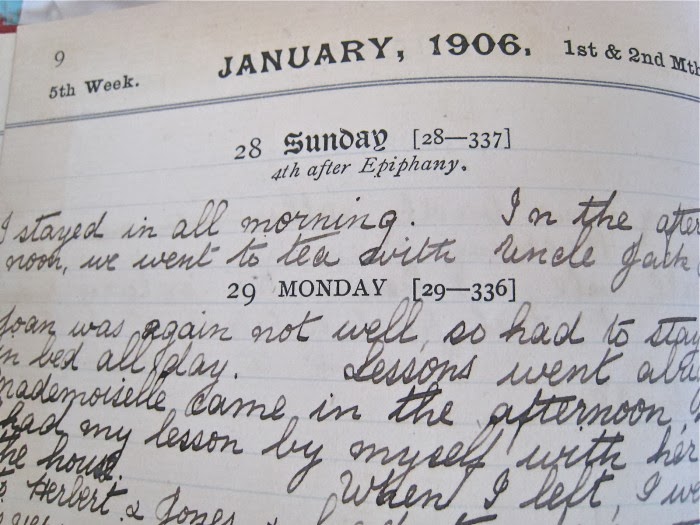 9
JANUARY, 1906. 1st & 2nd Mth
5th Week.
28 Sunday [28—337]
4th after Epiphany.
I stayed in all morning. In the after
noon, we went to tea with Uncle Jack
29 MONDAY [29—336]
Joan was again not well, so had to stay
in bed all day. Lessons went
mademoiselle came in the afternoon,
had my lesson by myself with her
the house. When I left, I
Herbert & Jones &